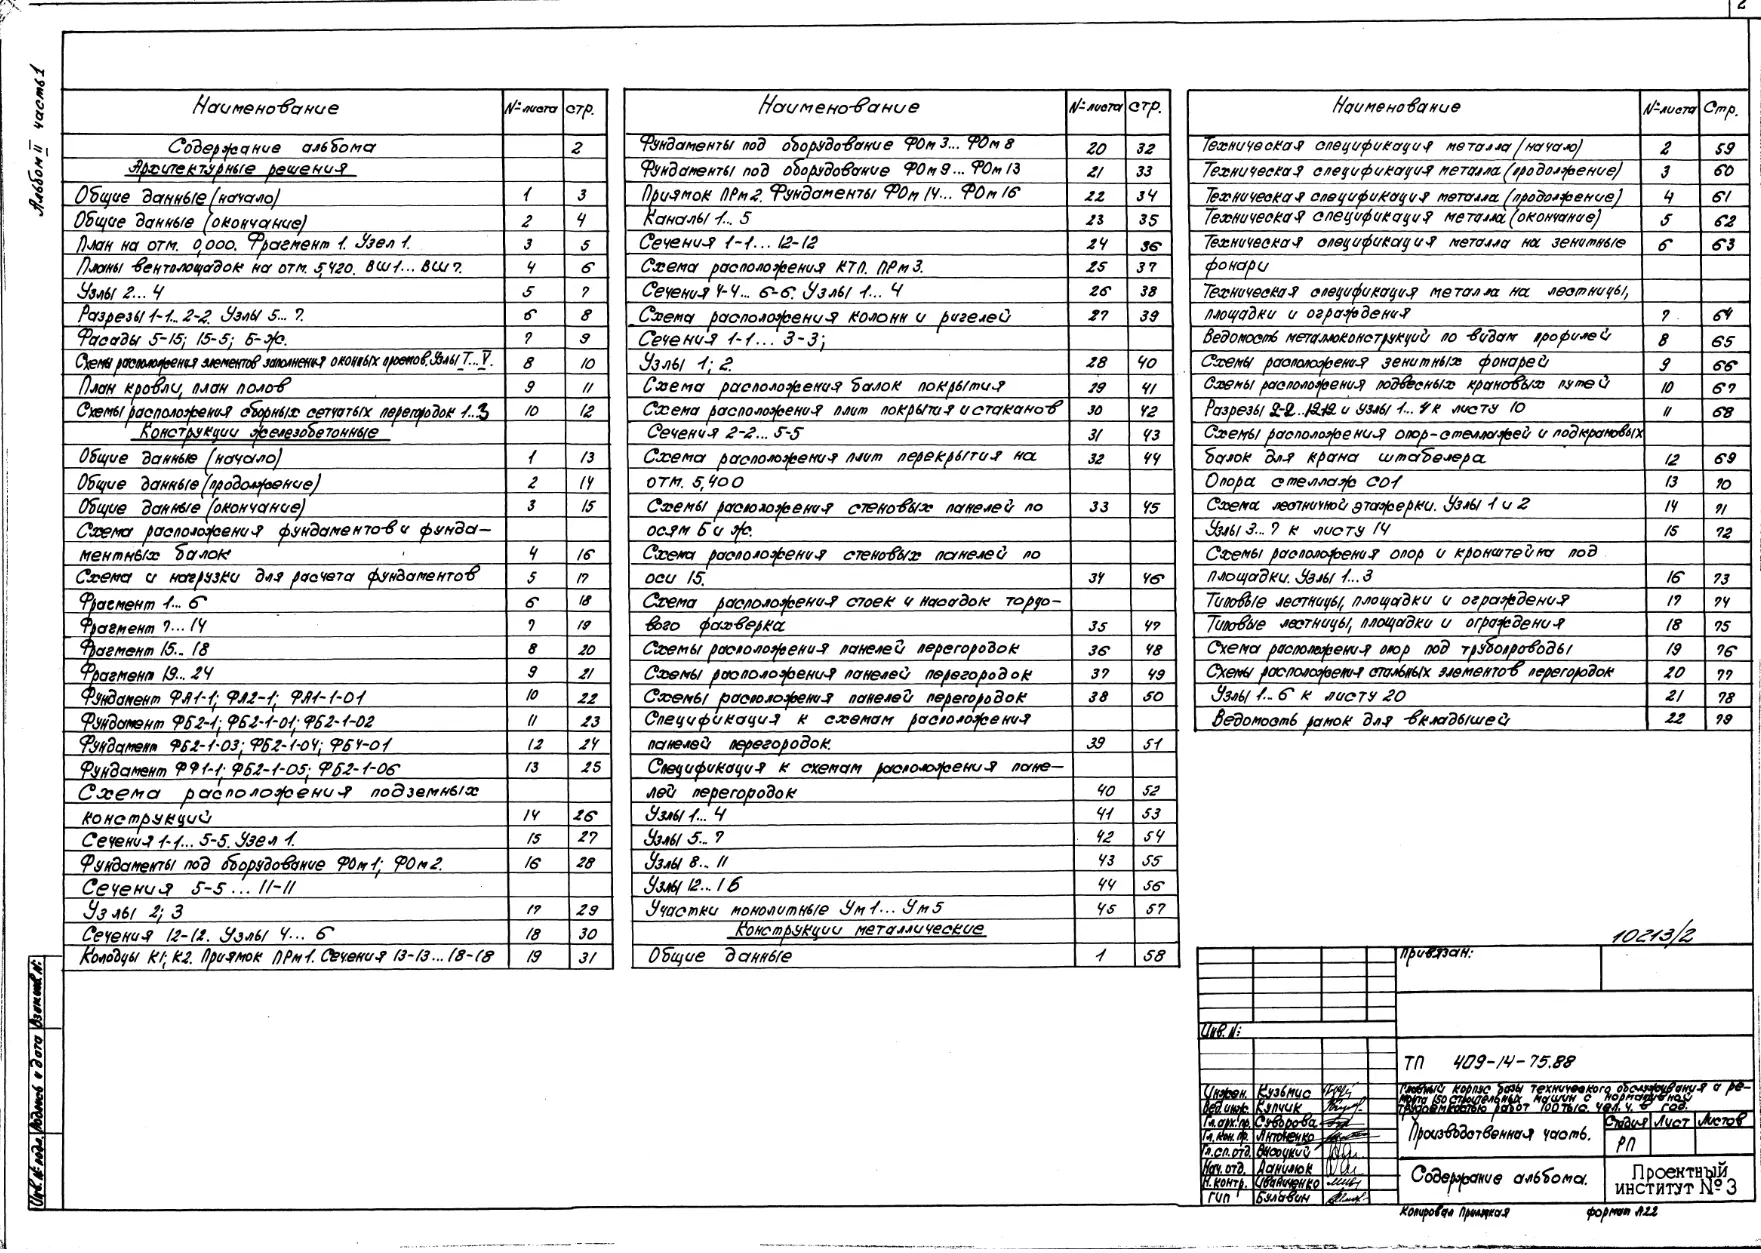 2
Альбом II часть 1
Наименование № листа стр.
Содержание альбома 2
Архитектурные решения
Общие данные (начало) 1 3
Общие данные (окончание) 2 4
План на отм. 0,000. Фрагмент 1. Узел 1. 3 5
Планы вентплощадок на отм. 5,420. ВШ1... ВШ7. 4 6
Узлы 2... 4 5 7
Разрезы 1-1.. 2-2. Узлы 5... 7. 6 8
Фасады 5-15; 15-5; Б-Ж. 7 9
Схемы расположения элементов заполнения оконных проемов. Узлы I...V. 8 10
План кровли, план полов 9 11
Схемы расположения сборных сетчатых перегородок 1..3 10 12
Конструкции железобетонные
Общие данные (начало) 1 13
Общие данные (продолжение) 2 14
Общие данные (окончание) 3 15
Схема расположения фундаментов и фунда-
ментных балок 4 16
Схема и нагрузки для расчета фундаментов 5 17
Фрагмент 1... 6 6 18
Фрагмент 7... 14 7 19
Фрагмент 15.. 18 8 20
Фрагмент 19... 24 9 21
Фундамент ФА1-1; ФА2-1; ФА1-1-01 10 22
Фундамент ФБ2-1; ФБ2-1-01; ФБ2-1-02 11 23
Фундамент ФБ2-1-03; ФБ2-1-04; ФБ4-01 12 24
Фундамент ФФ1-1; ФБ2-1-05; ФБ2-1-06 13 25
Схема расположения подземных
конструкций 14 26
Сечения 1-1... 5-5. Узел 1. 15 27
Фундаменты под оборудование ФОм1; ФОм2. 16 28
Сечения 5-5 ... 11-11
Узлы 2; 3 17 29
Сечения 12-12. Узлы 4... 6 18 30
Колодцы К1; К2. Приямок ПРм1. Сечения 13-13...18-18 19 31
Наименование № листа стр.
Фундаменты под оборудование ФОм3... ФОм8 20 32
Фундаменты под оборудование ФОм9... ФОм13 21 33
Приямок ПРм2. Фундаменты ФОм14... ФОм16 22 34
Каналы 1... 5 23 35
Сечения 1-1... 12-12 24 36
Схема расположения КТП. ПРм3. 25 37
Сечения 4-4... 6-6. Узлы 1... 4 26 38
Схема расположения колонн и ригелей 27 39
Сечения 1-1... 3-3;
Узлы 1; 2. 28 40
Схема расположения балок покрытия 29 41
Схема расположения плит покрытия и стаканов 30 42
Сечения 2-2... 5-5 31 43
Схема расположения плит перекрытия на 32 44
отм. 5,400
Схемы расположения стеновых панелей по 33 45
осям Б и Ж.
Схема расположения стеновых панелей по
оси 15. 34 46
Схема расположения стоек и насадок торцо-
вого фахверка 35 47
Схемы расположения панелей перегородок 36 48
Схемы расположения панелей перегородок 37 49
Схемы расположения панелей перегородок 38 50
Спецификация к схемам расположения
панелей перегородок. 39 51
Спецификация к схемам расположения пане-
лей перегородок 40 52
Узлы 1... 4 41 53
Узлы 5... 7 42 54
Узлы 8... 11 43 55
Узлы 12... 16 44 56
Участки монолитные Ум1... Ум5 45 57
Конструкции металлические
Общие данные 1 58
Наименование № листа Стр.
Техническая спецификация металла (начало) 2 59
Техническая спецификация металла (продолжение) 3 60
Техническая спецификация металла (продолжение) 4 61
Техническая спецификация металла (окончание) 5 62
Техническая спецификация металла на зенитные 6 63
фонари
Техническая спецификация металла на лестницы,
площадки и ограждения 7 64
Ведомость металлоконструкций по видам профилей 8 65
Схемы расположения зенитных фонарей 9 66
Схемы расположения подвесных крановых путей 10 67
Разрезы 2-2...12-12 и узлы 1... 4 к листу 10 11 68
Схемы расположения опор-стеллажей и подкрановых
балок для крана штабелера 12 69
Опора стеллаж СО1 13 70
Схема лестничной этажерки. Узлы 1 и 2 14 71
Узлы 3... 7 к листу 14 15 72
Схемы расположения опор и кронштейна под
площадки. Узлы 1... 3 16 73
Типовые лестницы, площадки и ограждения 17 74
Типовые лестницы, площадки и ограждения 18 75
Схема расположения опор под трубопроводы 19 76
Схемы расположения стальных элементов перегородок 20 77
Узлы 1.. 6 к листу 20 21 78
Ведомость рамок для вкладышей 22 79
10213/2
Привязан:
Инв. №:
ТП 409-14-75.88
Главный корпус базы технического обслуживания и ре-
монта 150 строительных машин с нормативной
трудоемкостью работ 100 тыс. чел. ч. в год.
Инжен. Кузьмис
Вед. инж. Купчик
Гл. арх. пр. Суворова
Гл. кон. пр. Антоненко
Гл. сп. отд. Высоцкий
Нач. отд. Данилюк
Н. контр. Иваниченко
ГИП Булавин
Производственная часть.
Стадия Лист Листов
РП
Содержание альбома.
Проектный
институт №3
Копировал формат А22
Инв. № подл. Подпись и дата Взам. инв. №: